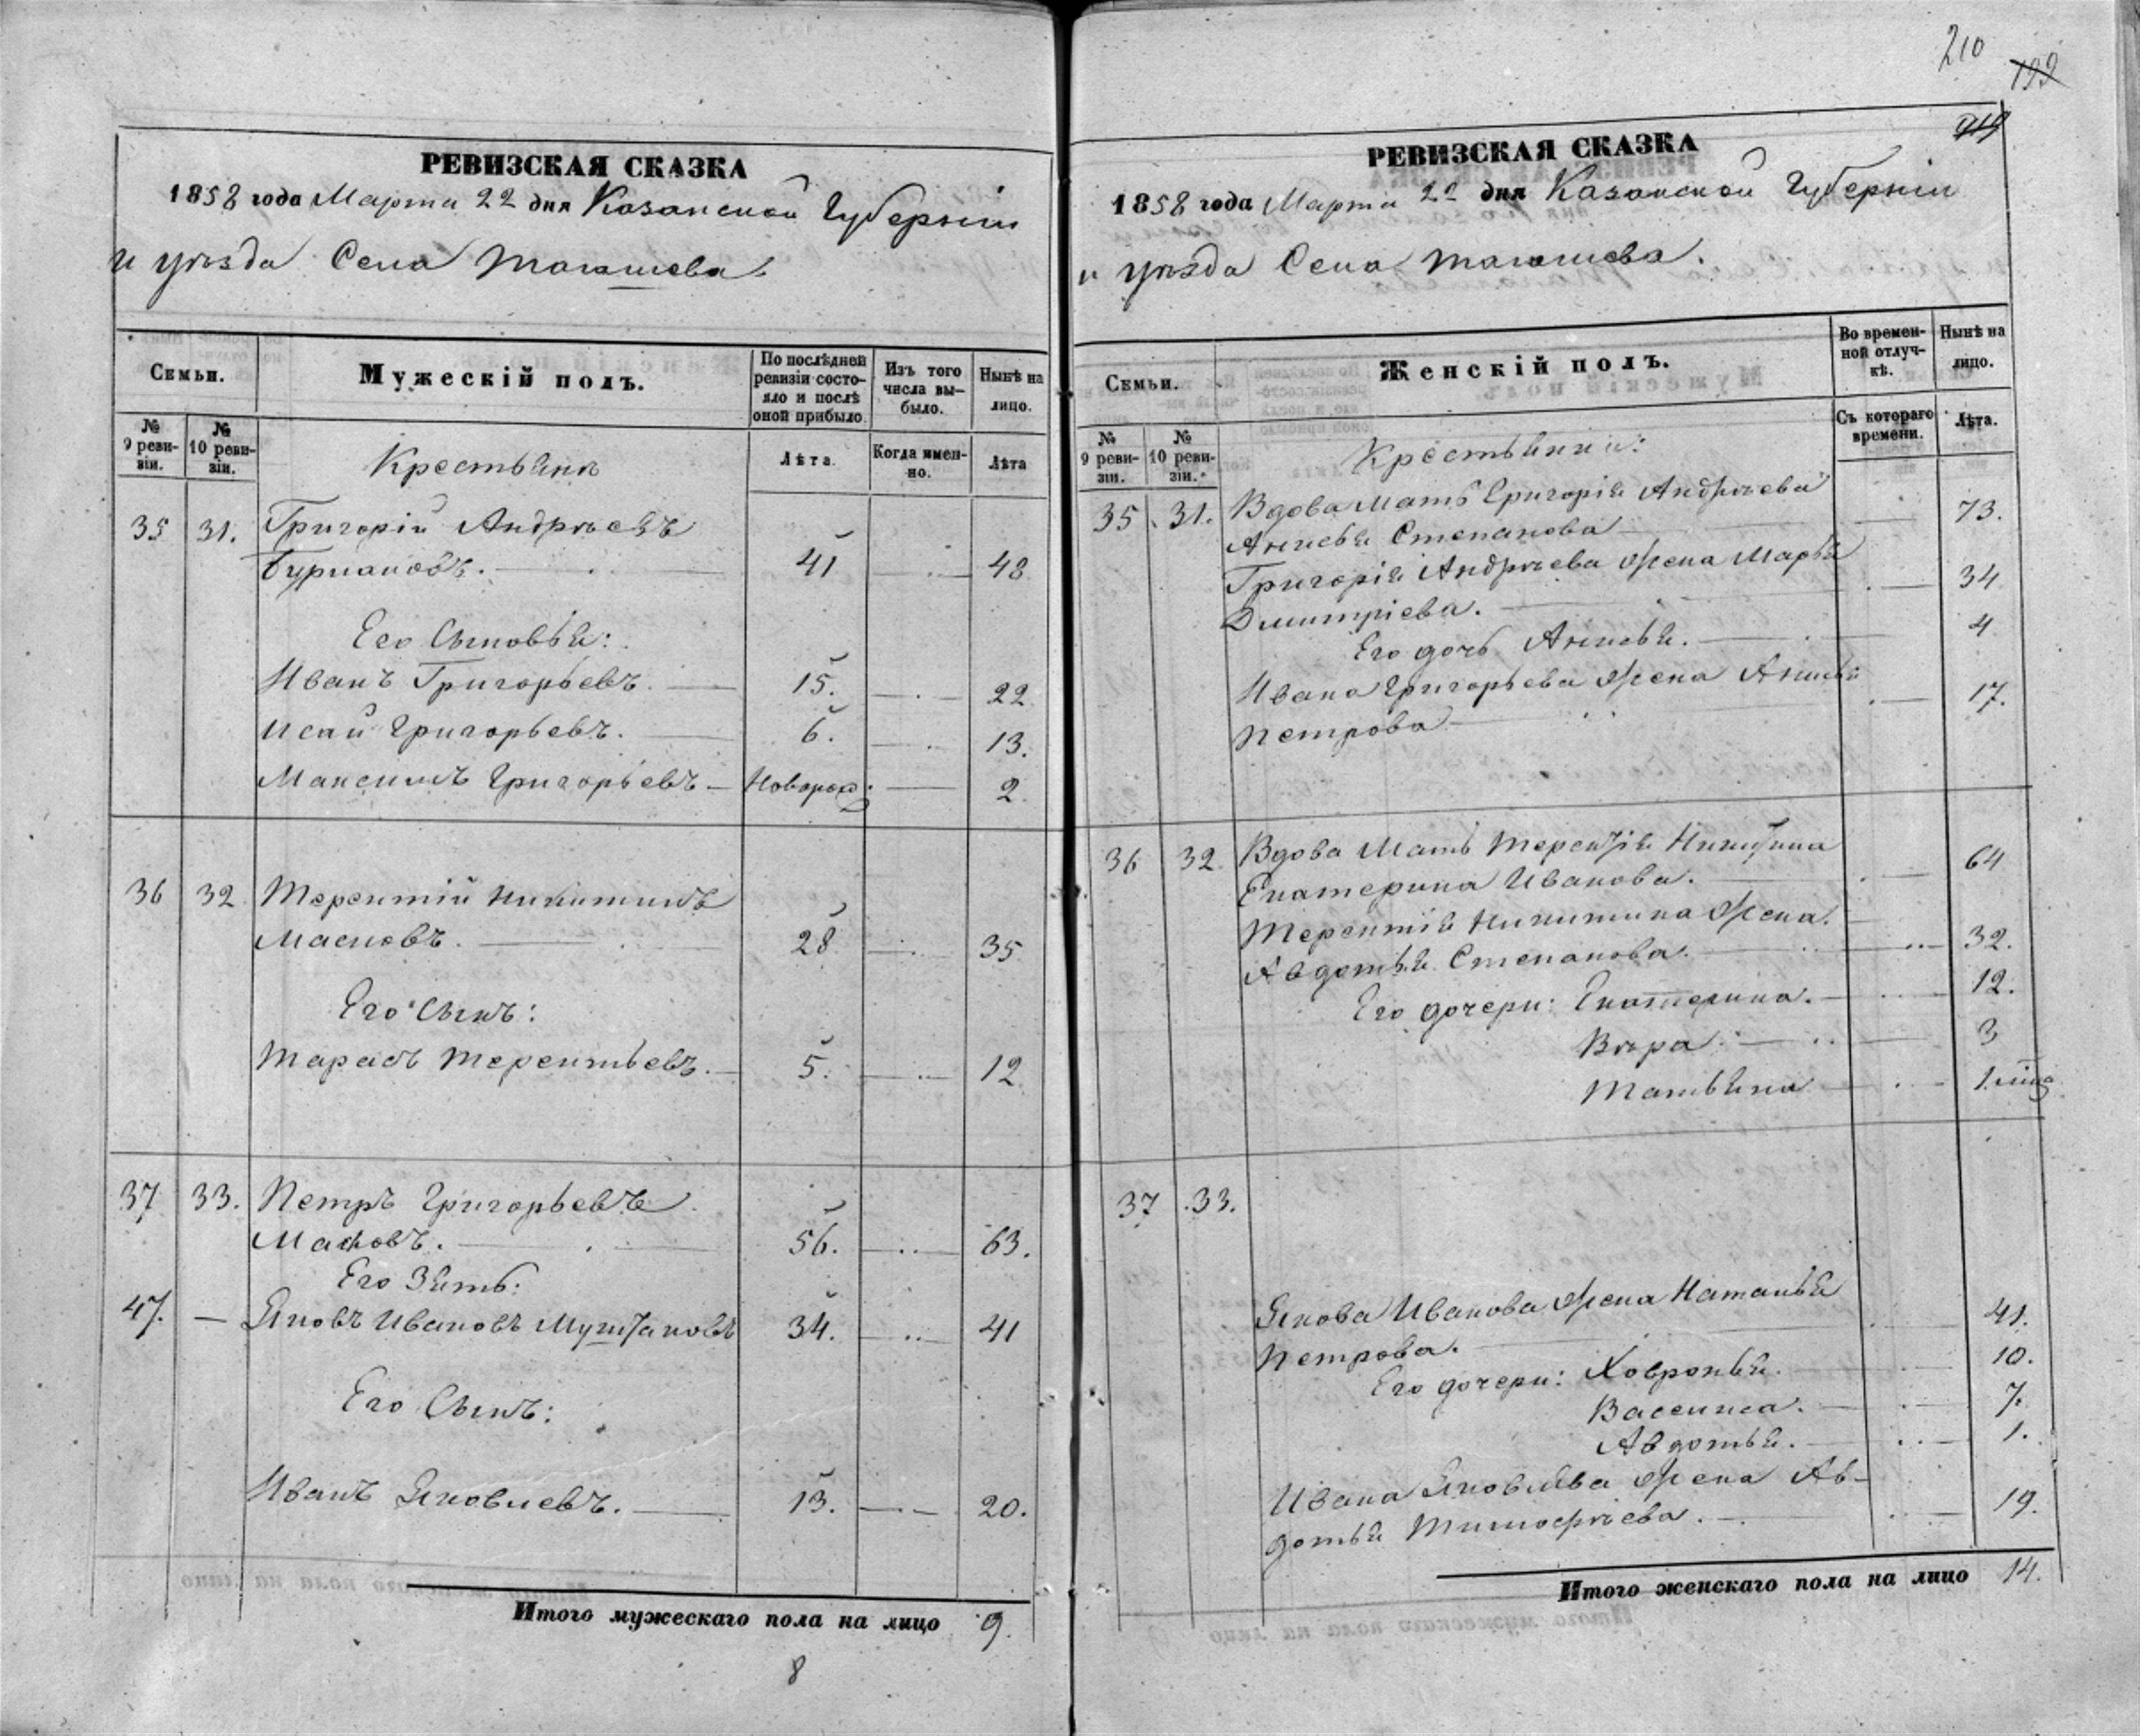 РЕВИЗСКАЯ СКАЗКА
1858 года Марта 22 дня Казанской Губерніи
и уѣзда Села Тагашева
Семьи.
Мужескій полъ.
По послѣдней ревизіи состояло и послѣ оной прибыло.
Изъ того числа выбыло.
Нынѣ на лицо.
№ 9 ревизіи.
№ 10 ревизіи.
Крестьяне
Лѣта.
Когда именно.
Лѣта
35 31. Григорій Андрѣевъ
41 48
Его Сыновья:
Иванъ Григорьевъ. 15. 22
Исай Григорьевъ. 6. 13.
Максимъ Григорьевъ Новорож: 2
36 32 Терентій Никитинъ
Масновъ. 28 35
Его Сынъ:
Тарасъ Терентьевъ. 5. 12
37 33. Петръ Григорьевъ
56. 63.
Его Зять:
47. — Яковъ Ивановъ 34. 41
Его Сынъ:
Иванъ Яковлевъ. 13. 20.
Итого мужескаго пола на лицо 9.
8
210
199
РЕВИЗСКАЯ СКАЗКА
1858 года Марта 22 дня Казанской Губерніи
и уѣзда Села Тагашева.
Семьи.
Женскій полъ.
Во временной отлучкѣ.
Нынѣ на лицо.
№ 9 ревизіи.
№ 10 ревизіи.
Крестьянки:
Съ котораго времени.
Лѣта.
35 31. Вдова Мать Григорія Андрѣева
Анисья Степанова 73.
Григорія Андрѣева жена Марья
Дмитріева. 34
Его дочь Анисья. 4
Ивана Григорьева жена Анисья
Петрова 17.
36 32 Вдова Мать Терентія Никитина
Екатерина Иванова. 64
Терентія Никитина жена.
Авдотья Степанова. 32.
Его дочери: Екатерина. 12.
Вѣра 3
Татьяна 1.
37 33.
Якова Иванова жена Наталья
Петрова. 41.
Его дочери: Ховронья. 10.
Васелиса. 7.
Авдотья. 1.
Ивана Яковлева жена Ав-
дотья Тимофѣева. 19.
Итого женскаго пола на лицо 14.